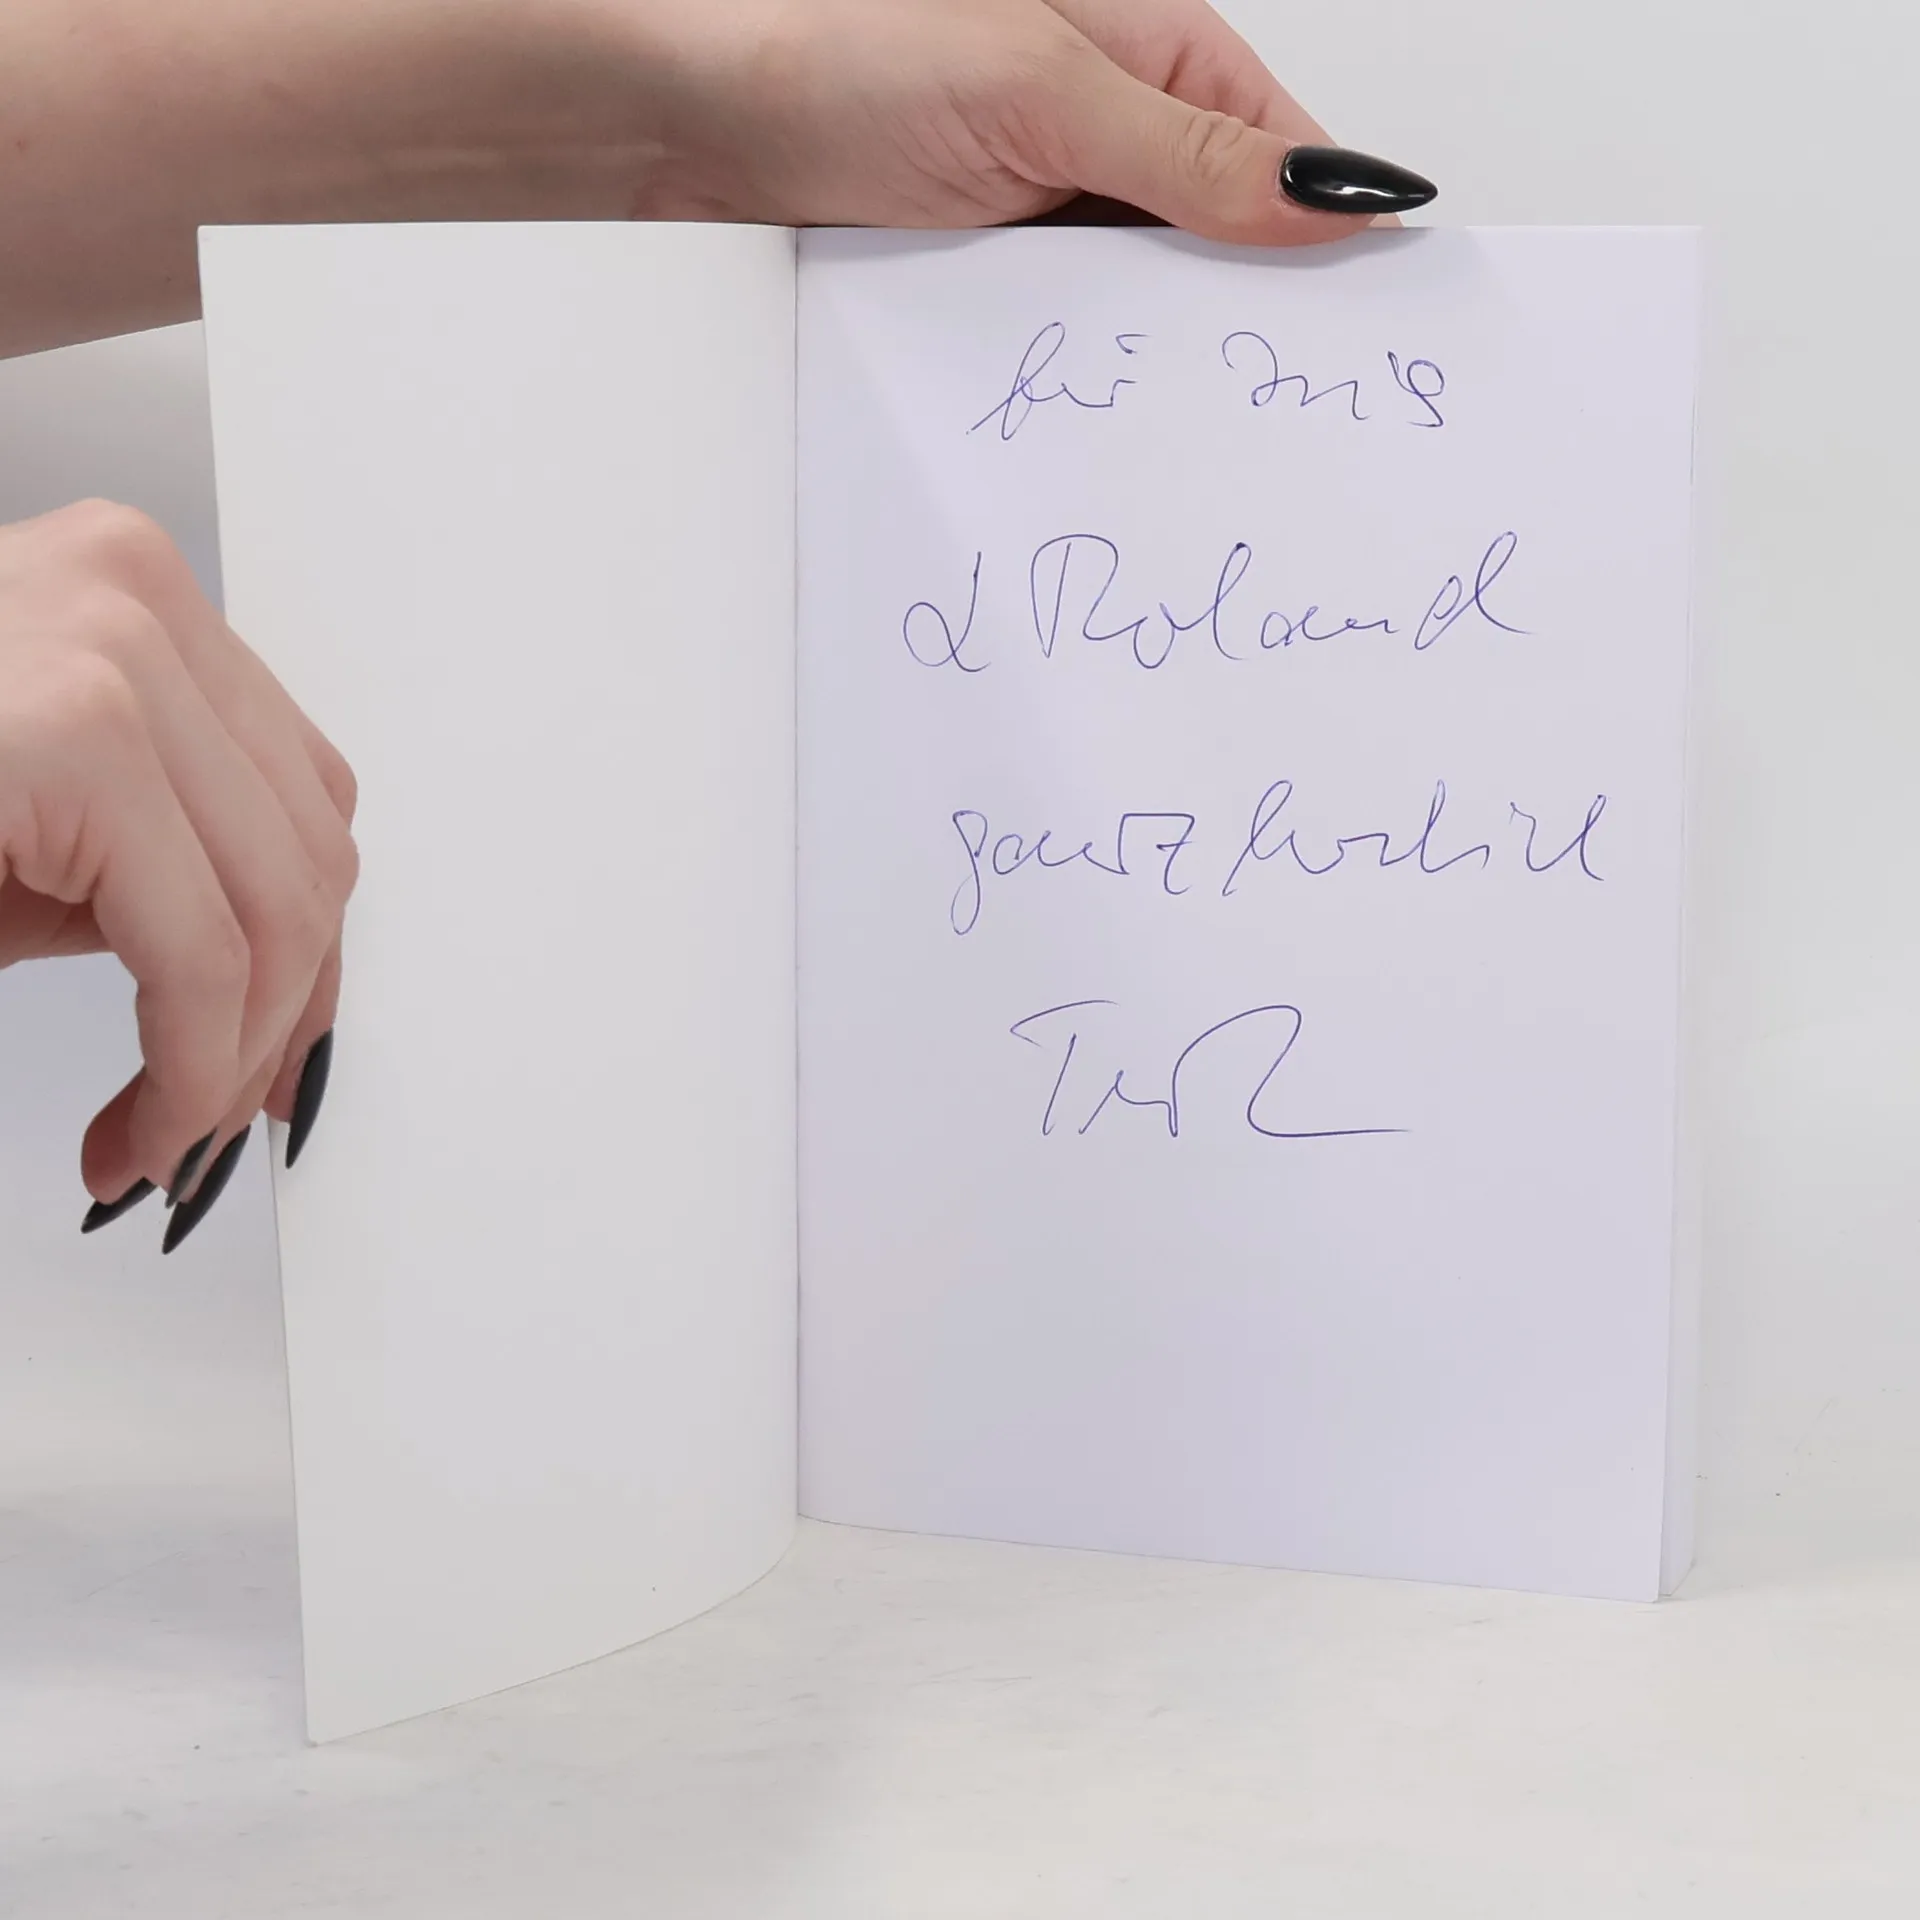 für Inis
& Roland
ganz herzlich